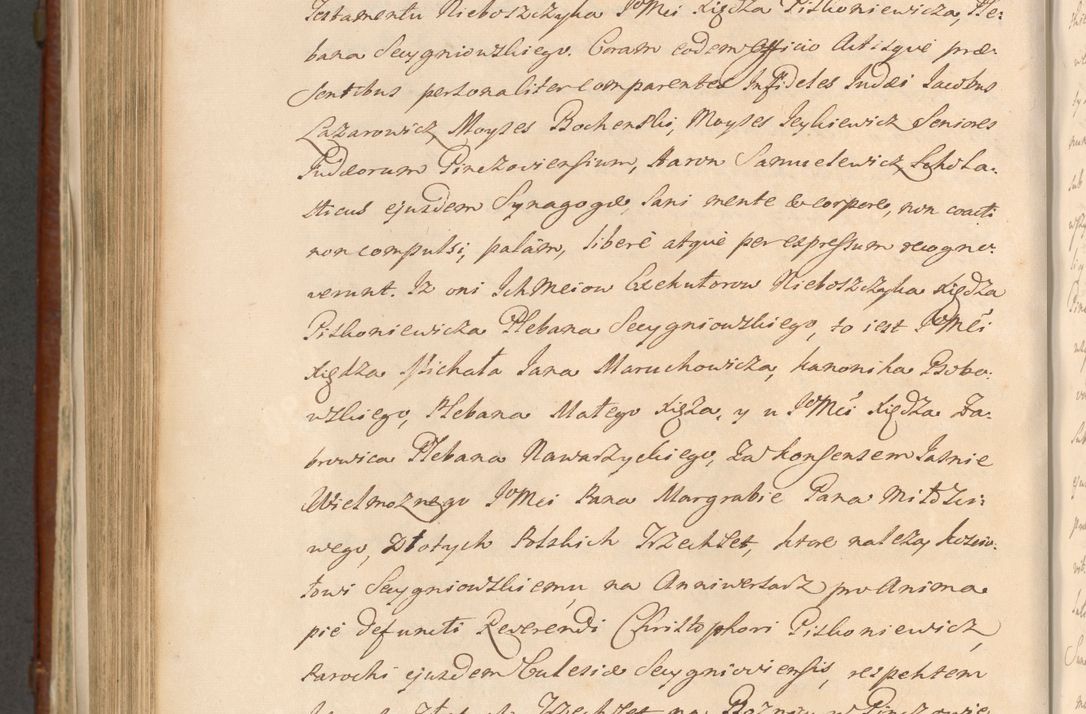 Testamentu Nieboszczyka JMci Xiędza Piskoniewicza, Ple-
bana Secygniowskiego. Coram eodem Officio Actisque præ-
sentibus personaliter comparentes Infideles Judæi Jacobus
Lazarowicz, Moyses Bochenski, Moyses Jcykiewicz Seniores
Judæorum Pinczoviensium, Aaron Samuelewicz Schola-
sticus ejusdem Synagogæ, sani mente & corpore, non coacti
non compulsi, palàm, liberè atquè per expressum recogno-
verunt. Iz oni Ichmciow Exekutorow Nieboszczyka Xiędza
Piskoniewicza Plebana Secygniowskiego, to iest JMci
Xiędza Michała Jana Maruchowicza, kanonika Bobo-
wskiego, Plebana Małego Xięża, y u JMci Xiędza Za-
browica Plebana Nawarzyckiego, Za konsensem Jasnie
Wielmoznego JMci Pana Margrabie Pana Miłosci-
wego, Złotych Polskich Trzechset, ktore należą koscio-
łowi Secygniowskiemu, na Anniwersarz pro Anima
piè defuncti Reverendi Christophori Piskoniewicz,
Parochi ejusdem Eclesiæ Secygnioviensis, respektem
Trzechset na Boznicy w Pinczowie